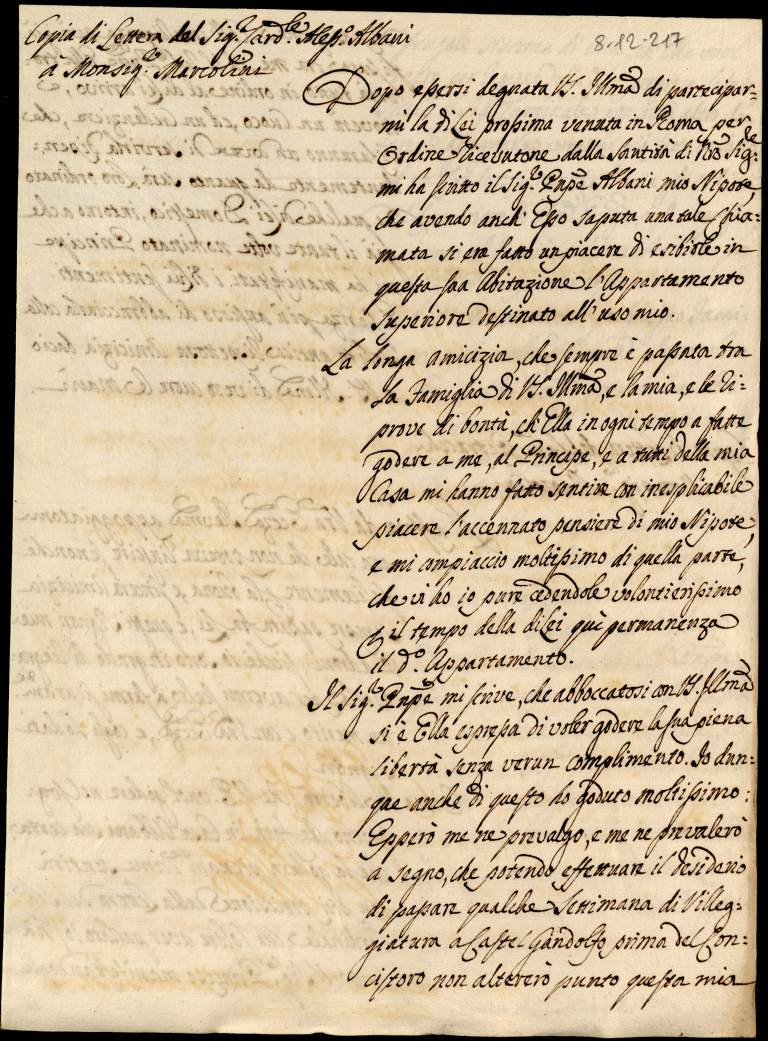 Copia di Lettera del Sig.r Card.le Aless.o Albani
à Monsig.r Marcolini
8-12-217
Dopo essersi degnata VS. Illma di partecipar-
mi la di Lei prossima venuta in Roma per
Ordine ricevutone dalla Santità di Nro Sig.re
mi ha scritto il Sig.r Pnpe Albani mio Nipote,
che avendo anch' Esso saputa una tale Chia-
mata si era fatto un piacere di esibirle in
questa sua Abitazione l'Appartamento
superiore destinato all' uso mio.
La longa amicizia, che sempre è passata tra
la Famiglia di VS. Illma, e la mia, e le ri=
prove di bontà, ch' Ella in ogni tempo a fatte
godere a me, al Principe, e a tutti della mia
Casa mi hanno fatto sentire con inesplicabile
piacere l'accennato pensiere di mio Nipote;
e mi compiaccio moltissimo di quella parte,
che vi ho io pure cedendole volontierissimo
il tempo della di Lei quì permanenza
il d.o Appartamento.
Il Sig.r Pnpe mi scrive, che abboccatosi con VS. Illma
si è Ella espressa di voler godere la sua piena
libertà senza verun complimento. Io dun=
que anche di questo ho goduto moltissimo:
Epperò me ne prevalgo, e me ne prevalerò
a segno, che potendo effettuare il desiderio
di passare qualche Settimana di Villeg=
giatura a Castel Gandolfo prima del Con=
cistoro non altererò punto questa mia